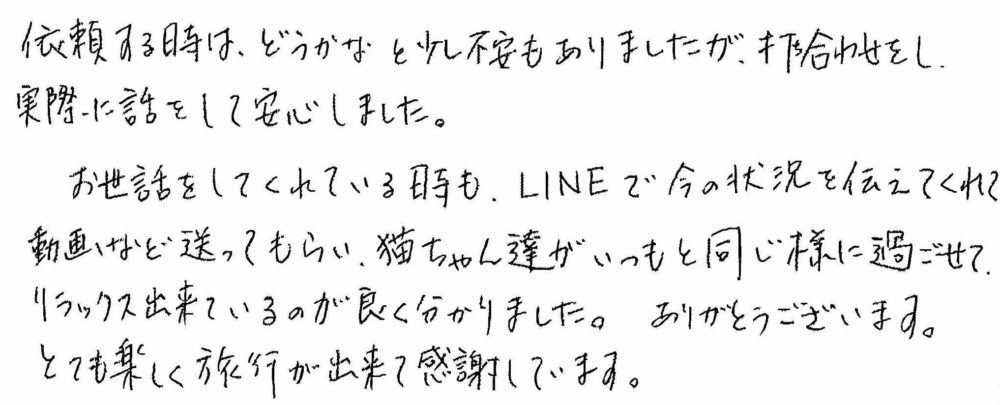 依頼する時は、どうかなと少し不安もありましたが、打合わせをし、
実際に話をして安心しました。
お世話をしてくれている時も、LINEで今の状況を伝えてくれて
動画など送ってもらい、猫ちゃん達がいつもと同じ様に過ごせて、
リラックス出来ているのが良く分かりました。 ありがとうございます。
とても楽しく旅行が出来て感謝しています。